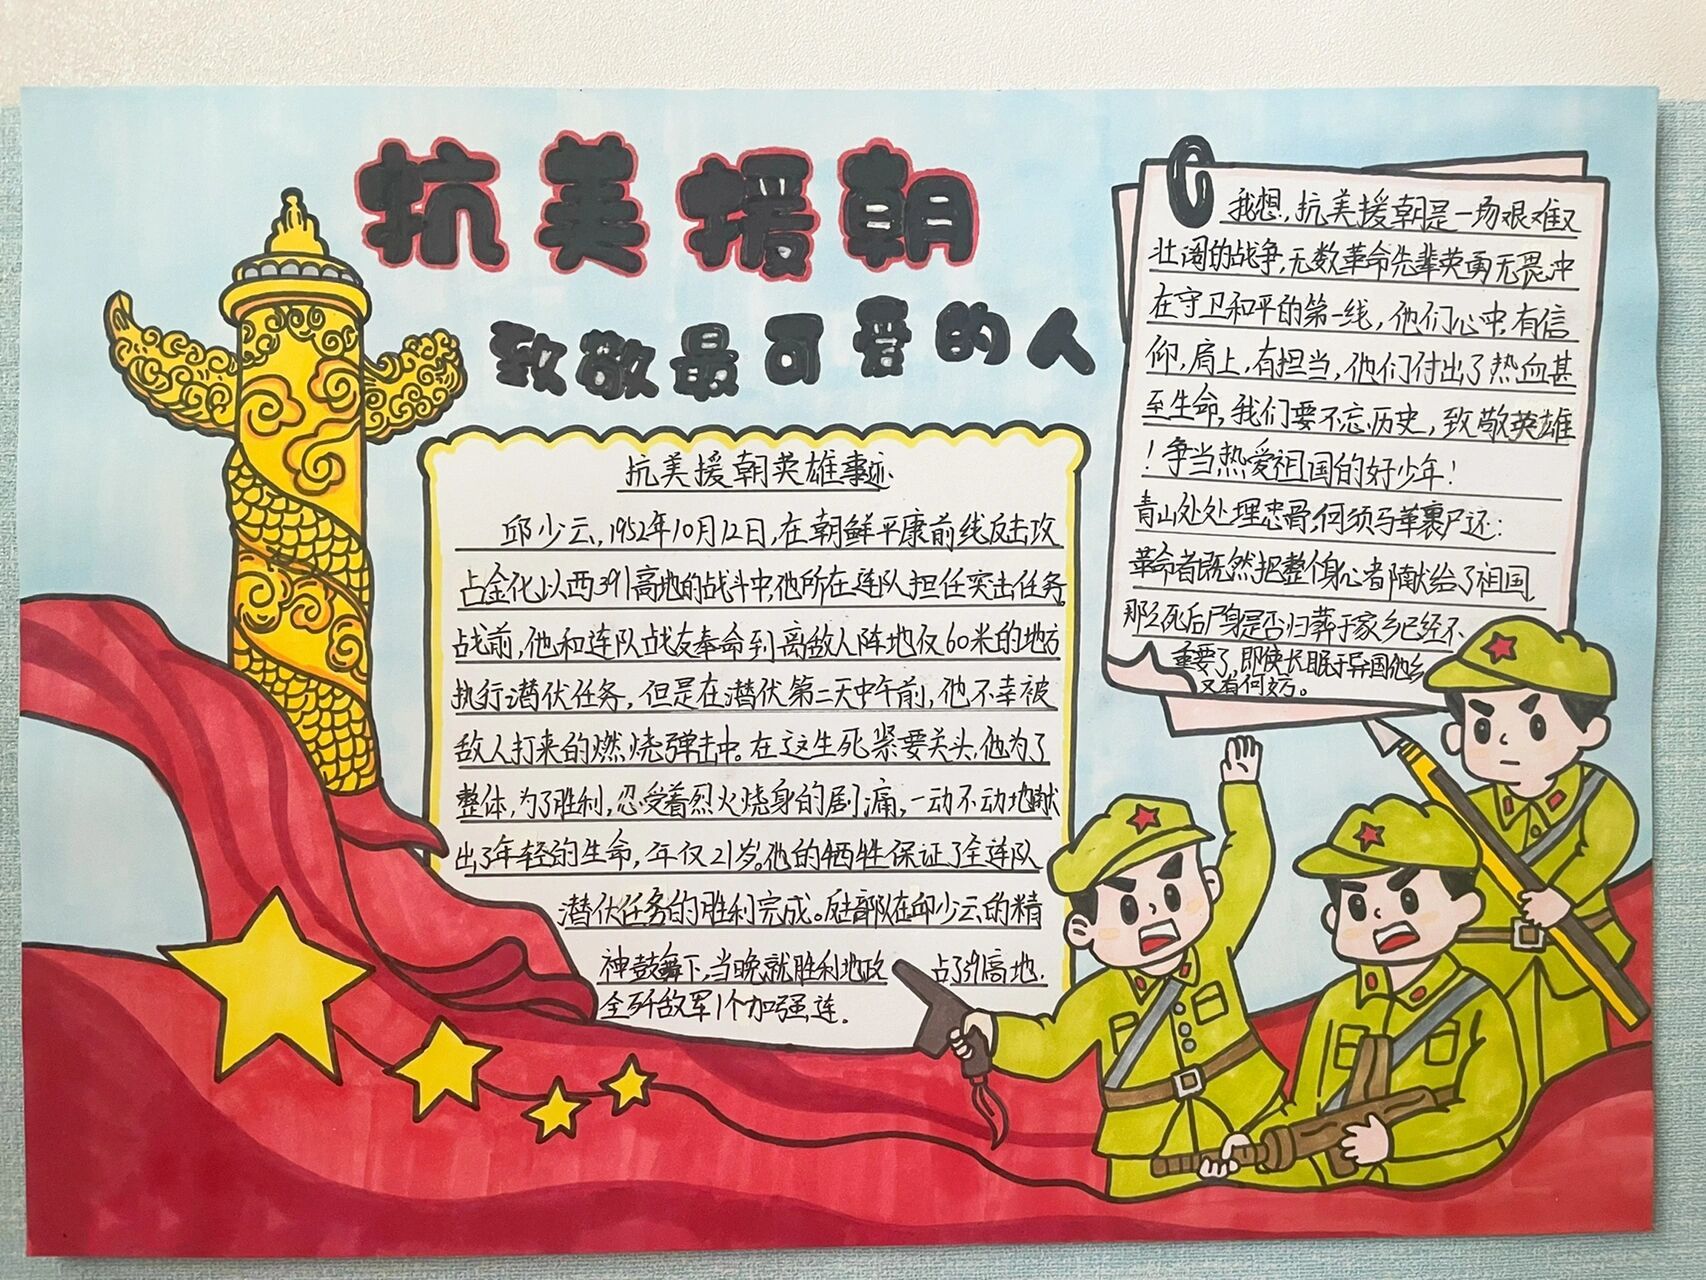 抗美援朝
致敬最可爱的人
抗美援朝英雄事迹
邱少云,1952年10月12日,在朝鲜平康前线反击攻
占金化以西391高地的战斗中,他所在连队担任突击任务。
战前,他和连队战友奉命到离敌人阵地仅60米的地方
执行潜伏任务,但是在潜伏第二天中午前,他不幸被
敌人打来的燃烧弹击中。在这生死紧要关头,他为了
整体,为了胜利,忍受着烈火烧身的剧痛,一动不动地献
出了年轻的生命,年仅21岁。他的牺牲保证了全连队
潜伏任务的胜利完成。反击部队在邱少云的精
神鼓舞下,当晚就胜利地攻占了391高地,
全歼敌军1个加强连。
我想,抗美援朝是一场艰难又
壮阔的战争,无数革命先辈英勇无畏冲
在守卫和平的第一线,他们心中,有信
仰,肩上,有担当,他们付出了热血甚
至生命,我们要不忘历史,致敬英雄
!争当热爱祖国的好少年!
青山处处埋忠骨,何须马革裹尸还:
革命者既然把整个身心都献给了祖国,
那么死后尸身是否归葬于家乡已经不
重要了,即使长眠于异国他乡
又有何妨。